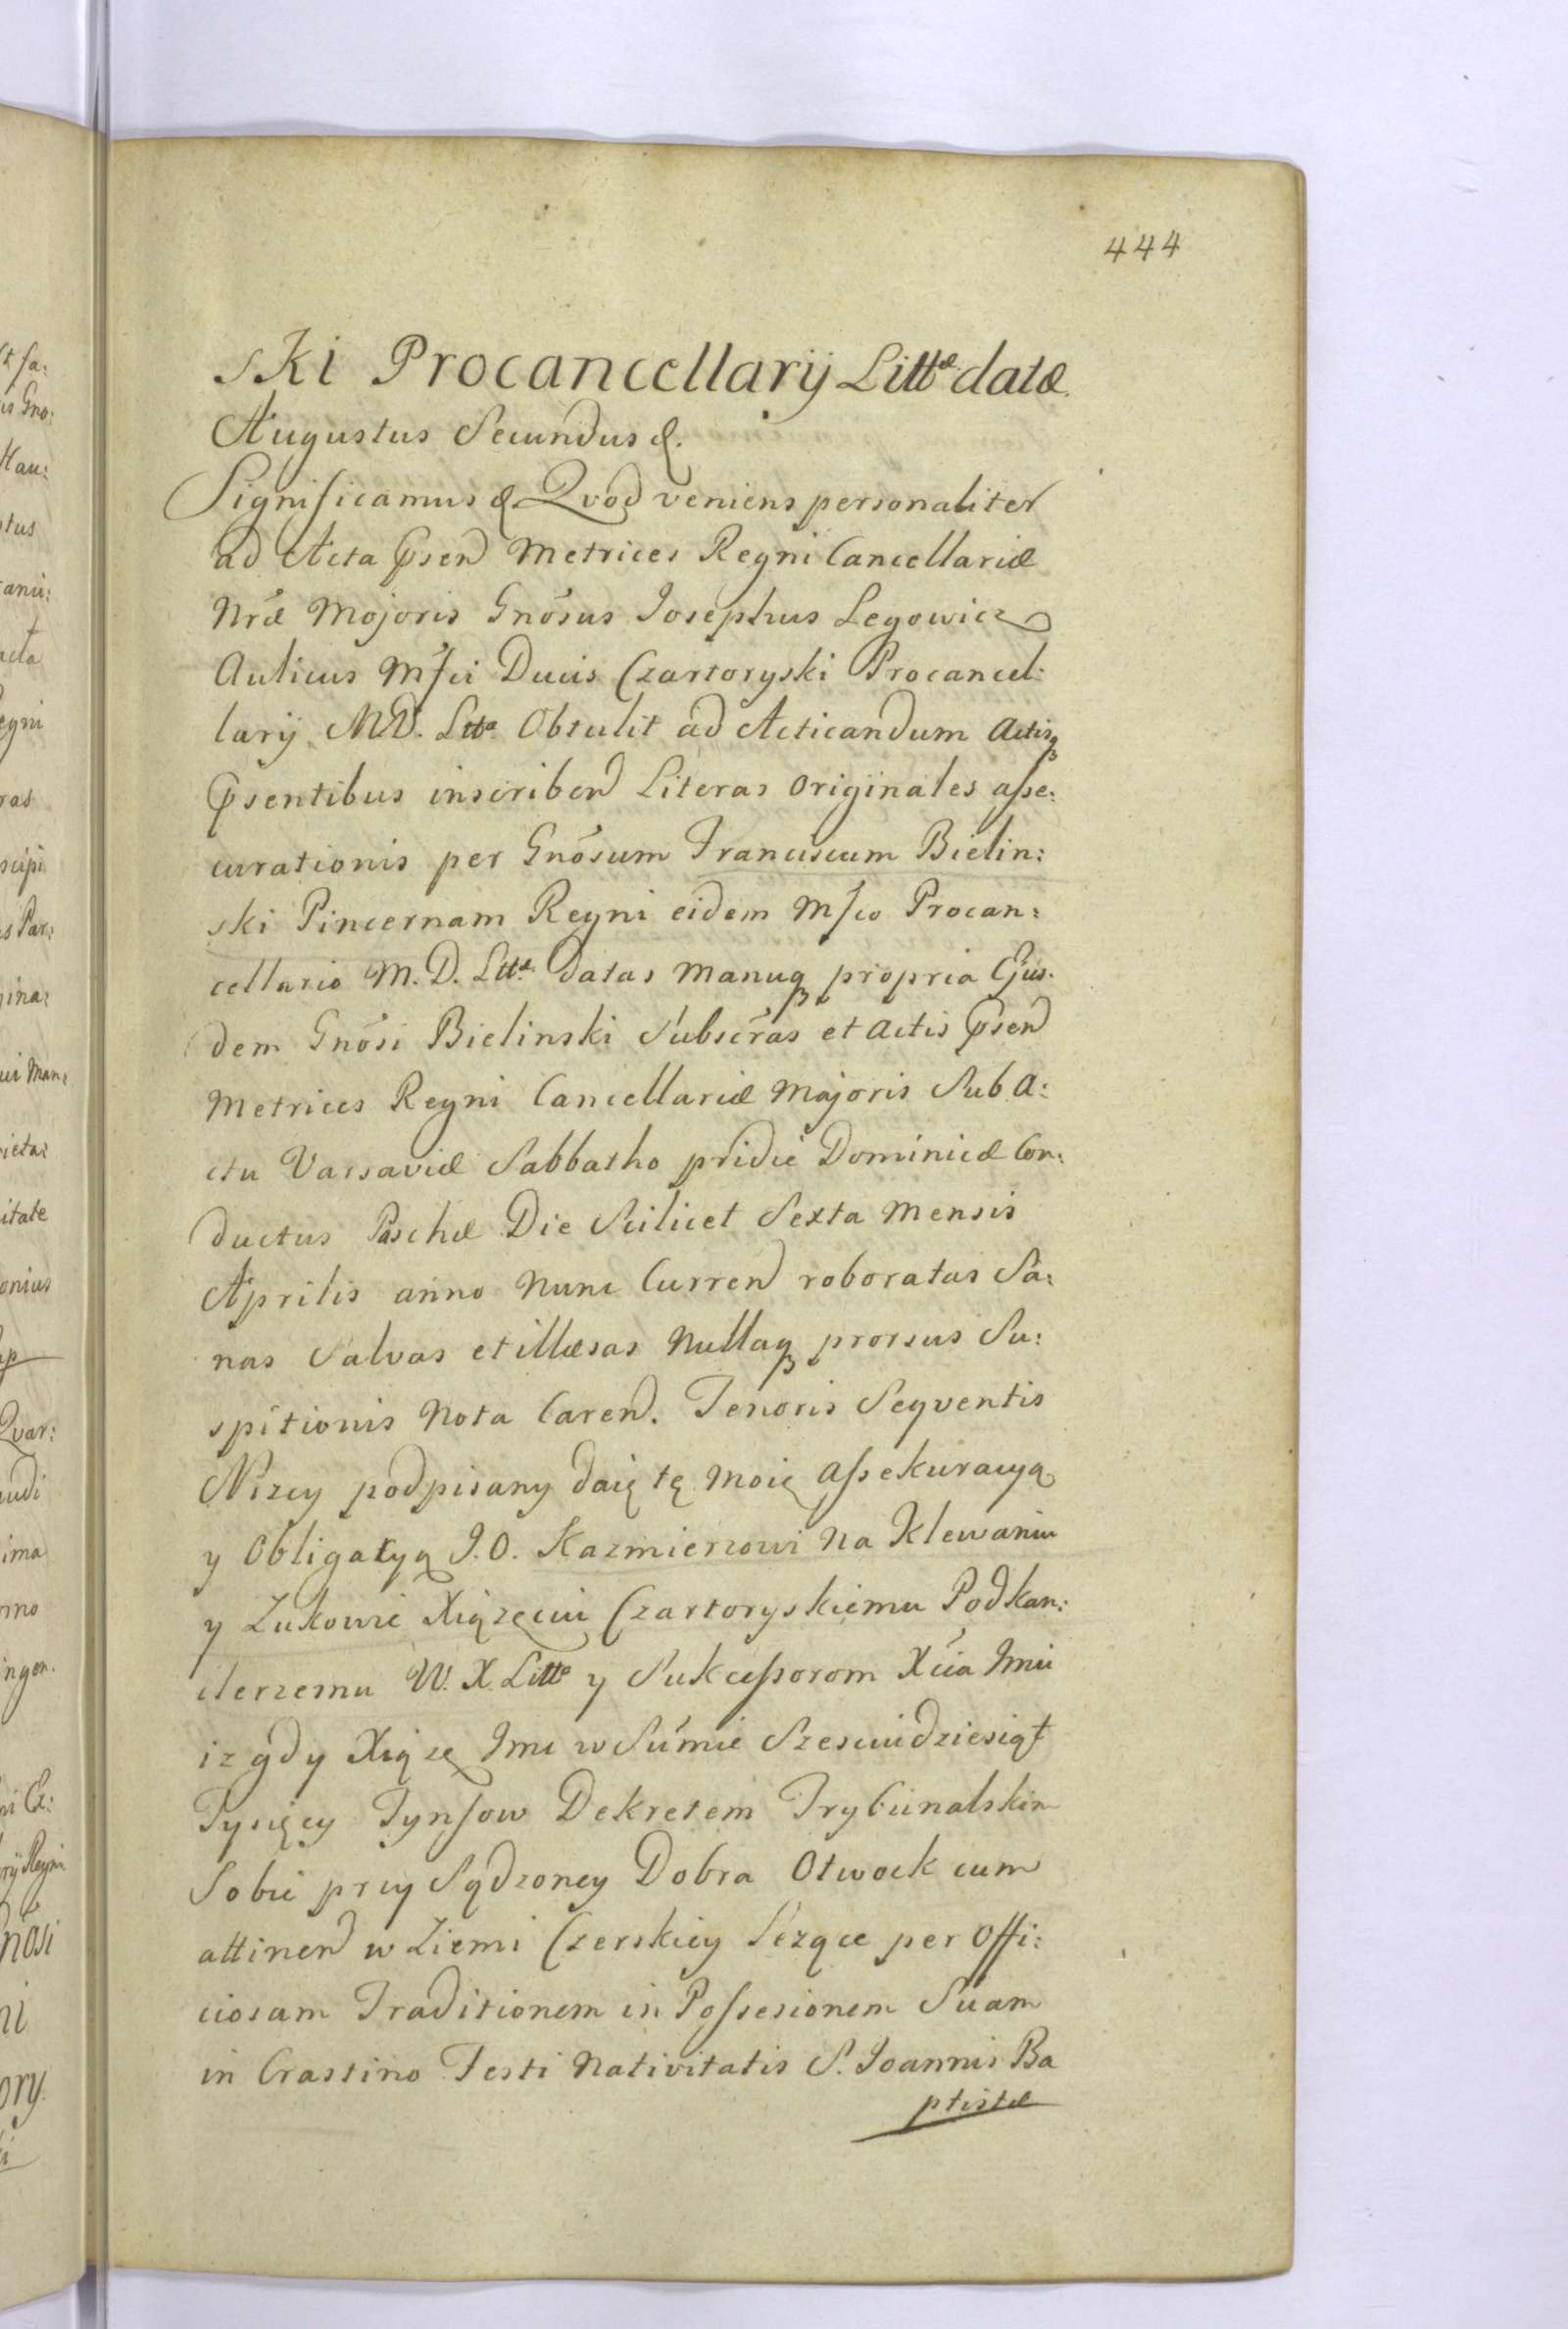 444
ski Procancellarij Littæ datæ.
Augustus Secundus &.
Significamus & Qvod veniens personaliter
ad Acta Psen Metrices Regni Cancellariæ
Nræ Majoris Gnosus Josephus Legowicz
Aulicus Mfci Ducis Czartoryski Procancel:
larij M.D. Litta Obtulit ad Acticandum Actisq
Psentibus inscriben Literas Originales asse:
curationis per Gnosum Franciscum Bielin:
ski Pincernam Regni eidem Mfco Procan:
cellario M.D. Littæ datas manuq propria Ejus:
dem Gnosi Bielinski Subscras et Actis Psen
Metrices Regni Cancellariæ Majoris Sub A:
ctu Varsaviæ Sabbatho pridie Dominicæ Con:
ductus Paschæ Die Scilicet Sexta Mensis
Aprilis anno Nunc Curren roboratas Sa:
nas Salvas et illæsas Nullaq prorsus Su:
spitionis Nota Caren. Tenoris Seqventis
Nizey podpisany daię tę moię Assekuracyą
y Obligacyą J.O. Kazmierzowi Na Klewaniu
y Zukowie Xiązęciu Czartoryskiemu Podkan:
clerzemu W.X. Litto y Sukcessorom Xcia Jmci
iz gdy Xiąze Jmc w Summie Szesciudziesiąt
Tysięcy Tynfow Dekretem Trybunalskim
Sobie przy Sądzoney Dobra Otwock cum
attinen w Ziemi Czerskiey Lezące per Offi:
ciosam Traditionem in Possesionem Suam
in Crastino Festi Nativitatis S. Joannis Ba
ptistæ